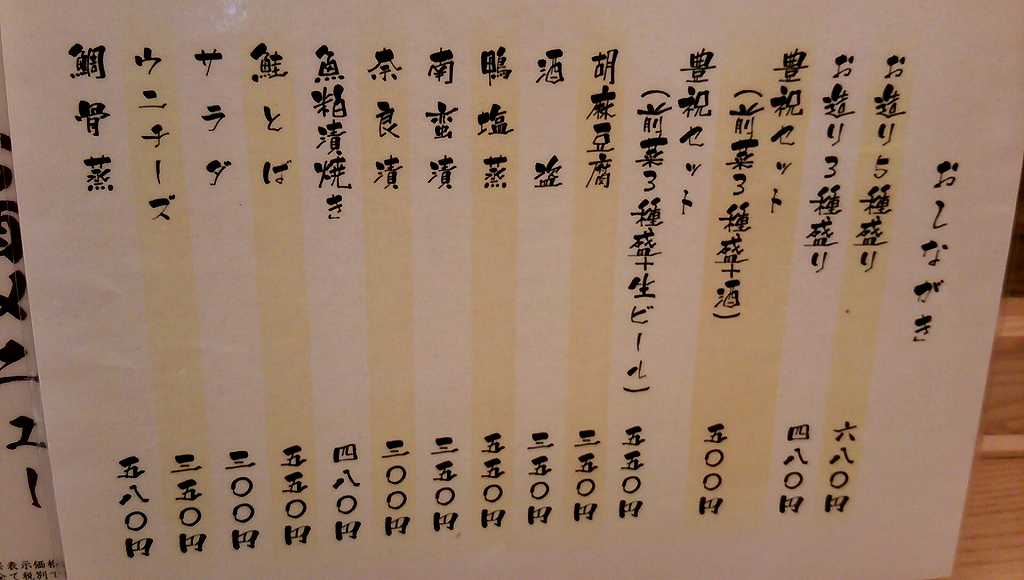 おしながき
お造り5種盛り 六八〇円
お造り3種盛り 四八〇円
豊祝セット
(前菜3種盛+酒) 五〇〇円
豊祝セット
(前菜3種盛+生ビール) 五五〇円
胡麻豆腐 三五〇円
酒盗 三五〇円
鴨塩蒸 五五〇円
南蛮漬 三五〇円
奈良漬 三〇〇円
魚粕漬焼き 四八〇円
鮭とば 五五〇円
サラダ 三〇〇円
ウニチーズ 三五〇円
鯛骨蒸 五八〇円
メニュー
表示価格
全て税別で